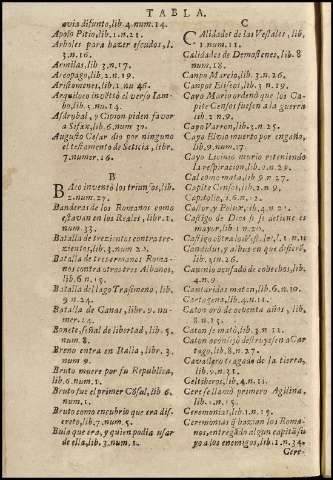 TABLA.
avia difunto, lib. 4. num. 14.
Apolo Pitio, lib. 1. n. 21.
Arboles para hazer escudos, l.
3. n. 16.
Armillas, lib. 3. n. 17.
Areopago, lib. 2. n. 19.
Aristomenes, lib. 1. nu. 46.
Arquiloco invẽtò el verso Iam-
bo, lib. 5. nu. 14.
Asdrubal, y Cipion piden favor
a Sifax, lib. 6. num. 30.
Augusto Cesar dio por ninguno
el testamento de Seticia, libr.
7. numer. 16.
B
BAco inventò los triunfos, lib.
2. num. 27.
Banderas de los Romanos como
estavan en los Reales, libr. 2.
num. 33.
Batalla de trezientos contra tre-
zientos, lib. 3. num. 22.
Batalla de tres ermanos Roma-
nos contra otros tres Albanos,
lib. 6. n. 15.
Batalla del lago Trasimeno, lib.
9. n. 24.
Batalla de Canas, libr. 9. nu-
mer. 14.
Bonete, señal de libertad, lib. 5.
num. 8.
Breno entra en Italia, libr. 3.
num. 9.
Bruto muere por su Republica,
lib. 6. num. 1.
Bruto fue el primer Cõsul, lib 6.
num. 1.
Bruto como encubriò que era dis-
creto, lib. 7. num. 5.
Bula que era, y quien podia usar
de ella, lib. 3. num. 1.
C
CAlidades de las Vestales, lib.
1. num. 11.
Calidades de Demostenes, lib. 8
num. 18.
Canpo Marcio, lib. 3. n. 26.
Canpos Eliseos, lib. 1. n. 19.
Cayo Mario ordenò que los Ca-
pite Censos fuesen a la guerra
lib. 2. n. 9.
Cayo Varron, lib. 3. n. 25.
Cayo Elvio muerto por engaño,
lib. 9. num. 17
Cayo Licinio murio reteniendo
la respiracion, lib. 9. n. 29.
Cal como mata, lib 9. n. 27.
Capite Censos, lib. 2. n. 9.
Capitolio, lib. 6. n. 21.
Castor, y Polux, lib. 4. n. 20.
Castigo de Dios si se detiene es
mayor, lib. 1 n. 20.
Candidus, y albus en que difierẽ,
lib. 3. n. 26.
Caninio acusado de cohechos, lib.
4. n. 9.
Cantaridas maten, lib. 6. n. 10.
Cartagena, lib. 4. n. 11.
Caton orò de oventa años, lib.
8. n. 15.
Caton se matò, lib. 3. n. 11.
Caton aconsejò destruyesen a Car
tago, lib. 8. n. 27.
Cavallero tragado de la tierra,
lib. 9. n. 31.
Celtiberos, lib. 4. n. 11.
Cere se llamò primero Agilina,
lib. 1. n. 15.
Ceremonias, lib. 1. n. 15.
Ceremonias q̃ hazian los Roma-
nos, entregãdo algun capitã su
yo a los enemigos, lib. 1. n. 34.
Cere-